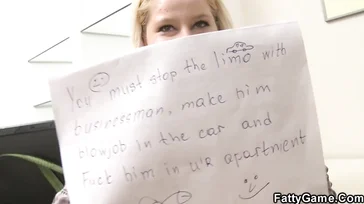 You must stop the limo with
businessman, make him
blowjob in the car and
Fuck him in u'R apartment
FattyGame.Com